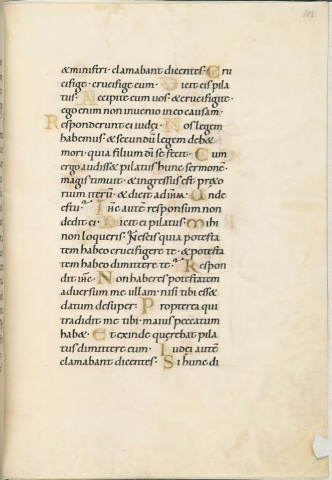 & ministri · clamabant dicentes · Cru
cifige · crucifige eum · Dicit eis pila
tus · Accipite eum uos · & crucifigite ·
ego enim non inuenio in eo causam ·
Responderunt ei iudei · Nos legem
habemus · & secundū legem deb&
mori · quia filium dī se fecit · Cum
ergo audiss& pilatus hunc sermonē ·
magis timuit · & ingressus est præto
rium iterū · & dicit ad iħm · Unde
es tu · Iħc autē responsum non
dedit ei · Dicit ei pilatus · Mihi
non loqueris · Nescis quia potesta
tem habeo crucifigere te · & potesta
tem habeo dimittere te · Respon
dit iħc · Non haberes potestatem
aduersum me ullam · nisi tibi ess&
datum desuper · Propterea qui
tradidit me tibi · maius peccatum
hab& · Et exinde querebat pila
tus dimittere eum · Iudei autē
clamabant dicentes · Si hunc di